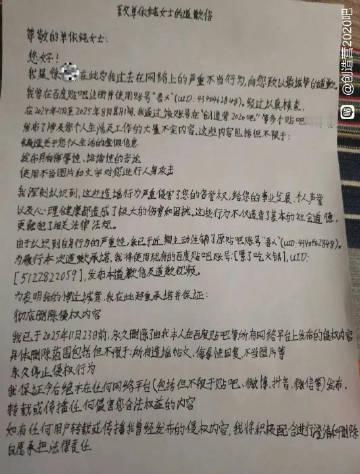 致单依纯女士的道歉信
尊敬的单依纯女士:
您好!
我是 在此为我过去在网络上的严重不当行为,向您致以最诚挚的歉意。
我曾在百度贴吧注册并使用账号
在2024年 月至2025年 月期间,我通过该账号在"创造营2020吧"等多个贴吧
发布了涉及您个人生活及工作的大量不实内容,这些内容包括但不限于:
编造关于您个人生活的虚假信息
使用不当图片和文字对您进行人身攻击
我深刻认识到,这些造谣行为严重侵害了您的名誉权,给您的事业发展、个人声誉
以及心理健康都造成了极大的伤害和困扰,这些行为不仅违背了基本的社会道德,
更触犯了相关法律法规。
由于认识到自身行为的严重性,我已于近期主动注销了原贴吧账号
为履行本次道歉承诺,我将使用现有的百度贴吧账号:
[5122822059],发布本道歉信及道歉视频。
为表明我的悔过诚意,我在此郑重承诺并保证:
彻底删除侵权内容
我已于2025年11月23日前,永久删除了由我本人在百度贴吧等所有网络平台上发布的侵权内容
具体删除范围包括但不限于:所有造谣帖文、侮辱性回复、不当图片等
永久停止侵权行为
我保证今后绝不在任何网络平台(包括但不限于贴吧、微博、抖音、微信等)发布、
转载或传播任何侵害您合法权益的内容
如有任何用户转载或传播我曾经发布的侵权内容,我将积极配合进行澄清和删除
自愿承担法律责任
@创造营2020吧